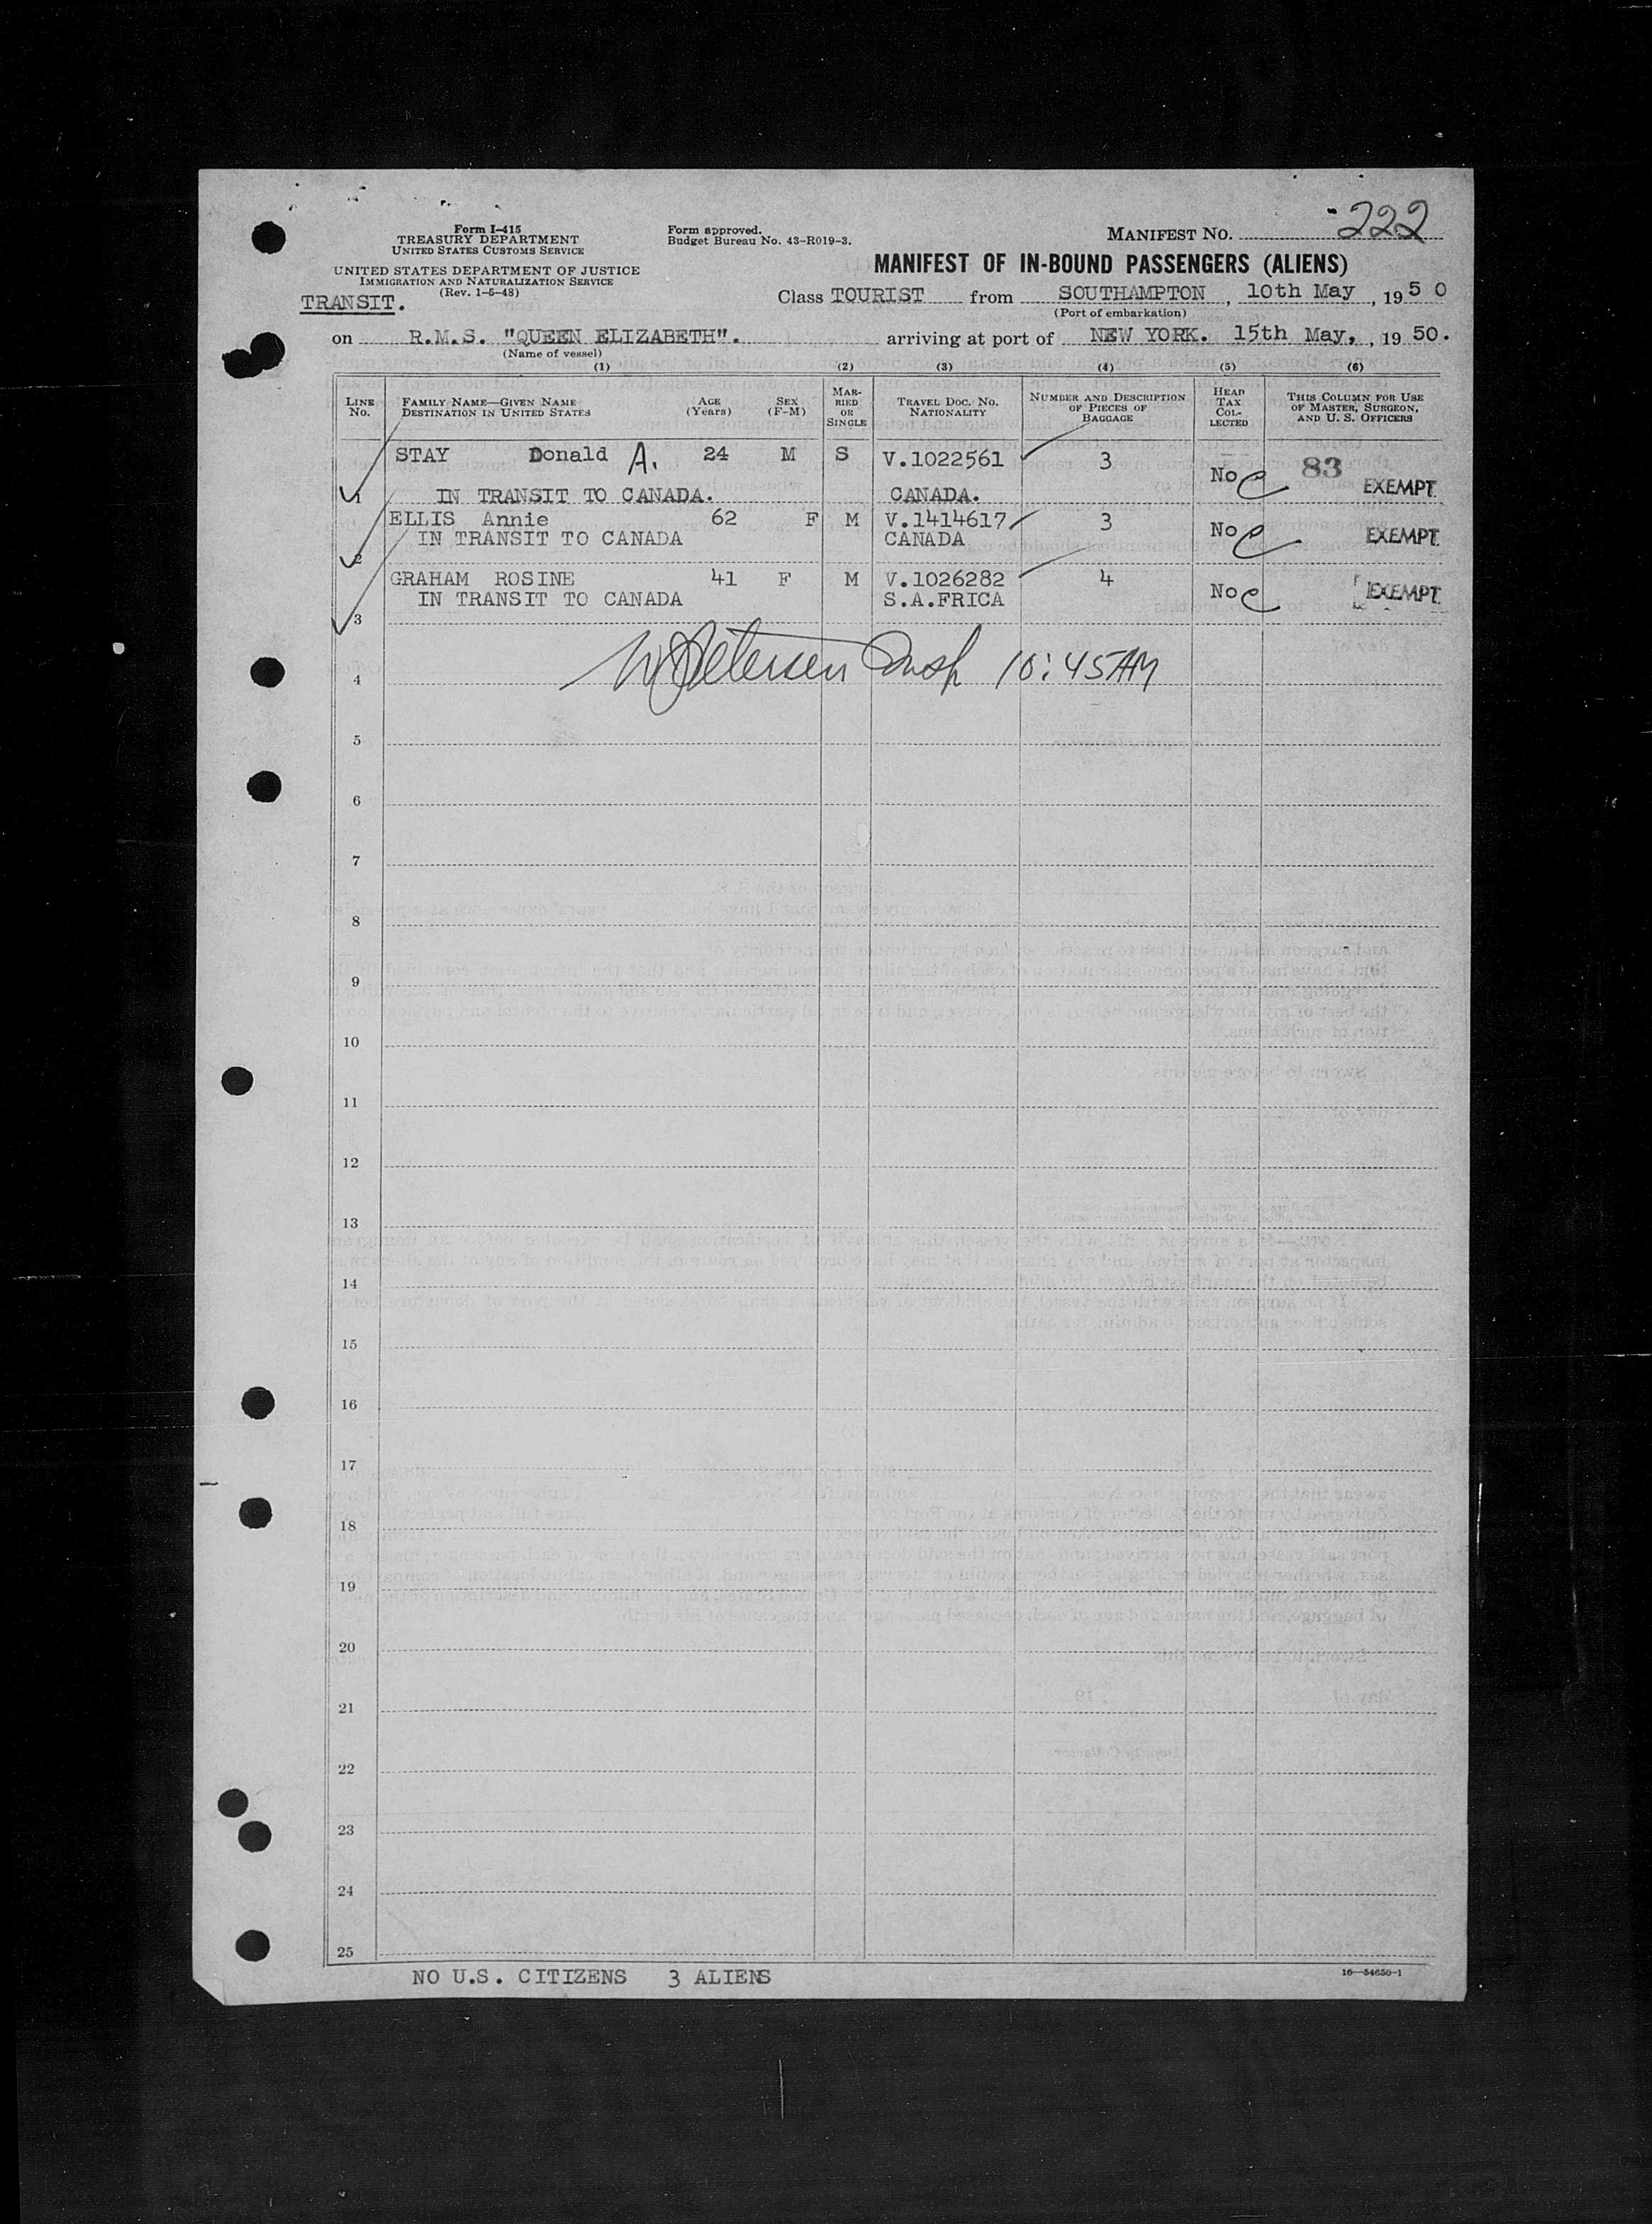 222
Form I-415
TREASURY DEPARTMENT
UNITED STATES CUSTOMS SERVICE
Form approved.
Budget Bureau No. 43-R019-3.
MANIFEST NO.
UNITED STATES DEPARTMENT OF JUSTICE
IMMIGRATION AND NATURALIZATION SERVICE
(Rev. 1-5-48)
MANIFEST OF IN-BOUND PASSENGERS (ALIENS)
TRANSIT.
Class TOURIST from SOUTHAMPTON, 10th May, 1950
(Port of embarkation)
on R.M.S. "QUEEN ELIZABETH". arriving at port of NEW YORK. 15th May, , 1950.
(Name of vessel)
(1) (2) (3) (4) (5) (6)
LINE No. FAMILY NAME—GIVEN NAME DESTINATION IN UNITED STATES AGE (Years) SEX (F-M) MARRIED OR SINGLE TRAVEL DOC. NO. NATIONALITY NUMBER AND DESCRIPTION OF PIECES OF BAGGAGE HEAD TAX COLLECTED THIS COLUMN FOR USE OF MASTER, SURGEON, AND U. S. OFFICERS
STAY Donald A. 24 M S V.1022561 3 No 83
1 IN TRANSIT TO CANADA. CANADA. EXEMPT
ELLIS Annie 62 F M V.1414617 3 No EXEMPT
2 IN TRANSIT TO CANADA CANADA
GRAHAM ROSINE 41 F M V.1026282 4 No EXEMPT
IN TRANSIT TO CANADA S.A.FRICA
3
Petersen Insp 10:45AM
4
5
6
7
8
9
10
11
12
13
14
15
16
17
18
19
20
21
22
23
24
25
NO U.S. CITIZENS 3 ALIENS
16—54650-1